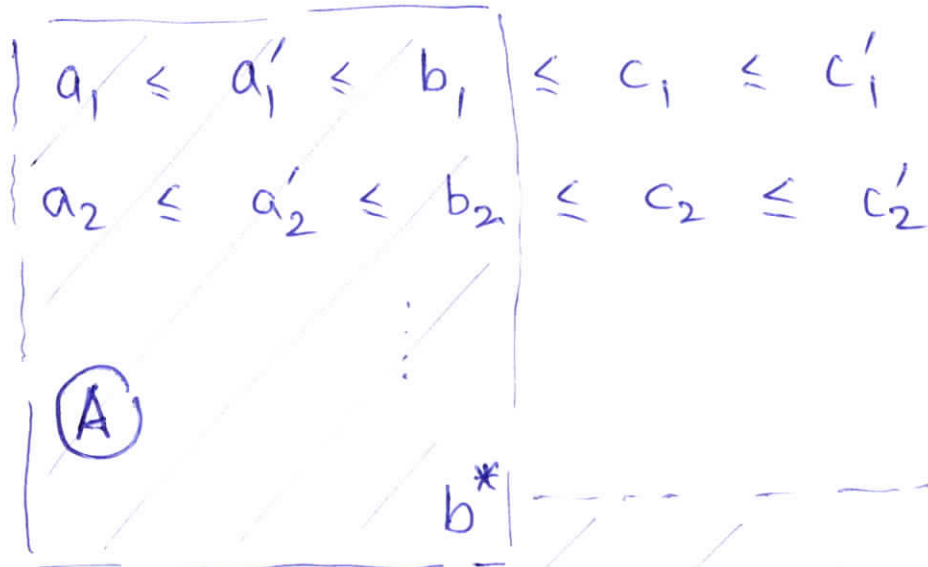 a₁ ≤ a₁′ ≤ b₁ ≤ c₁ ≤ c₁′
a₂ ≤ a₂′ ≤ b₂ ≤ c₂ ≤ c₂′
⋮
A
b*